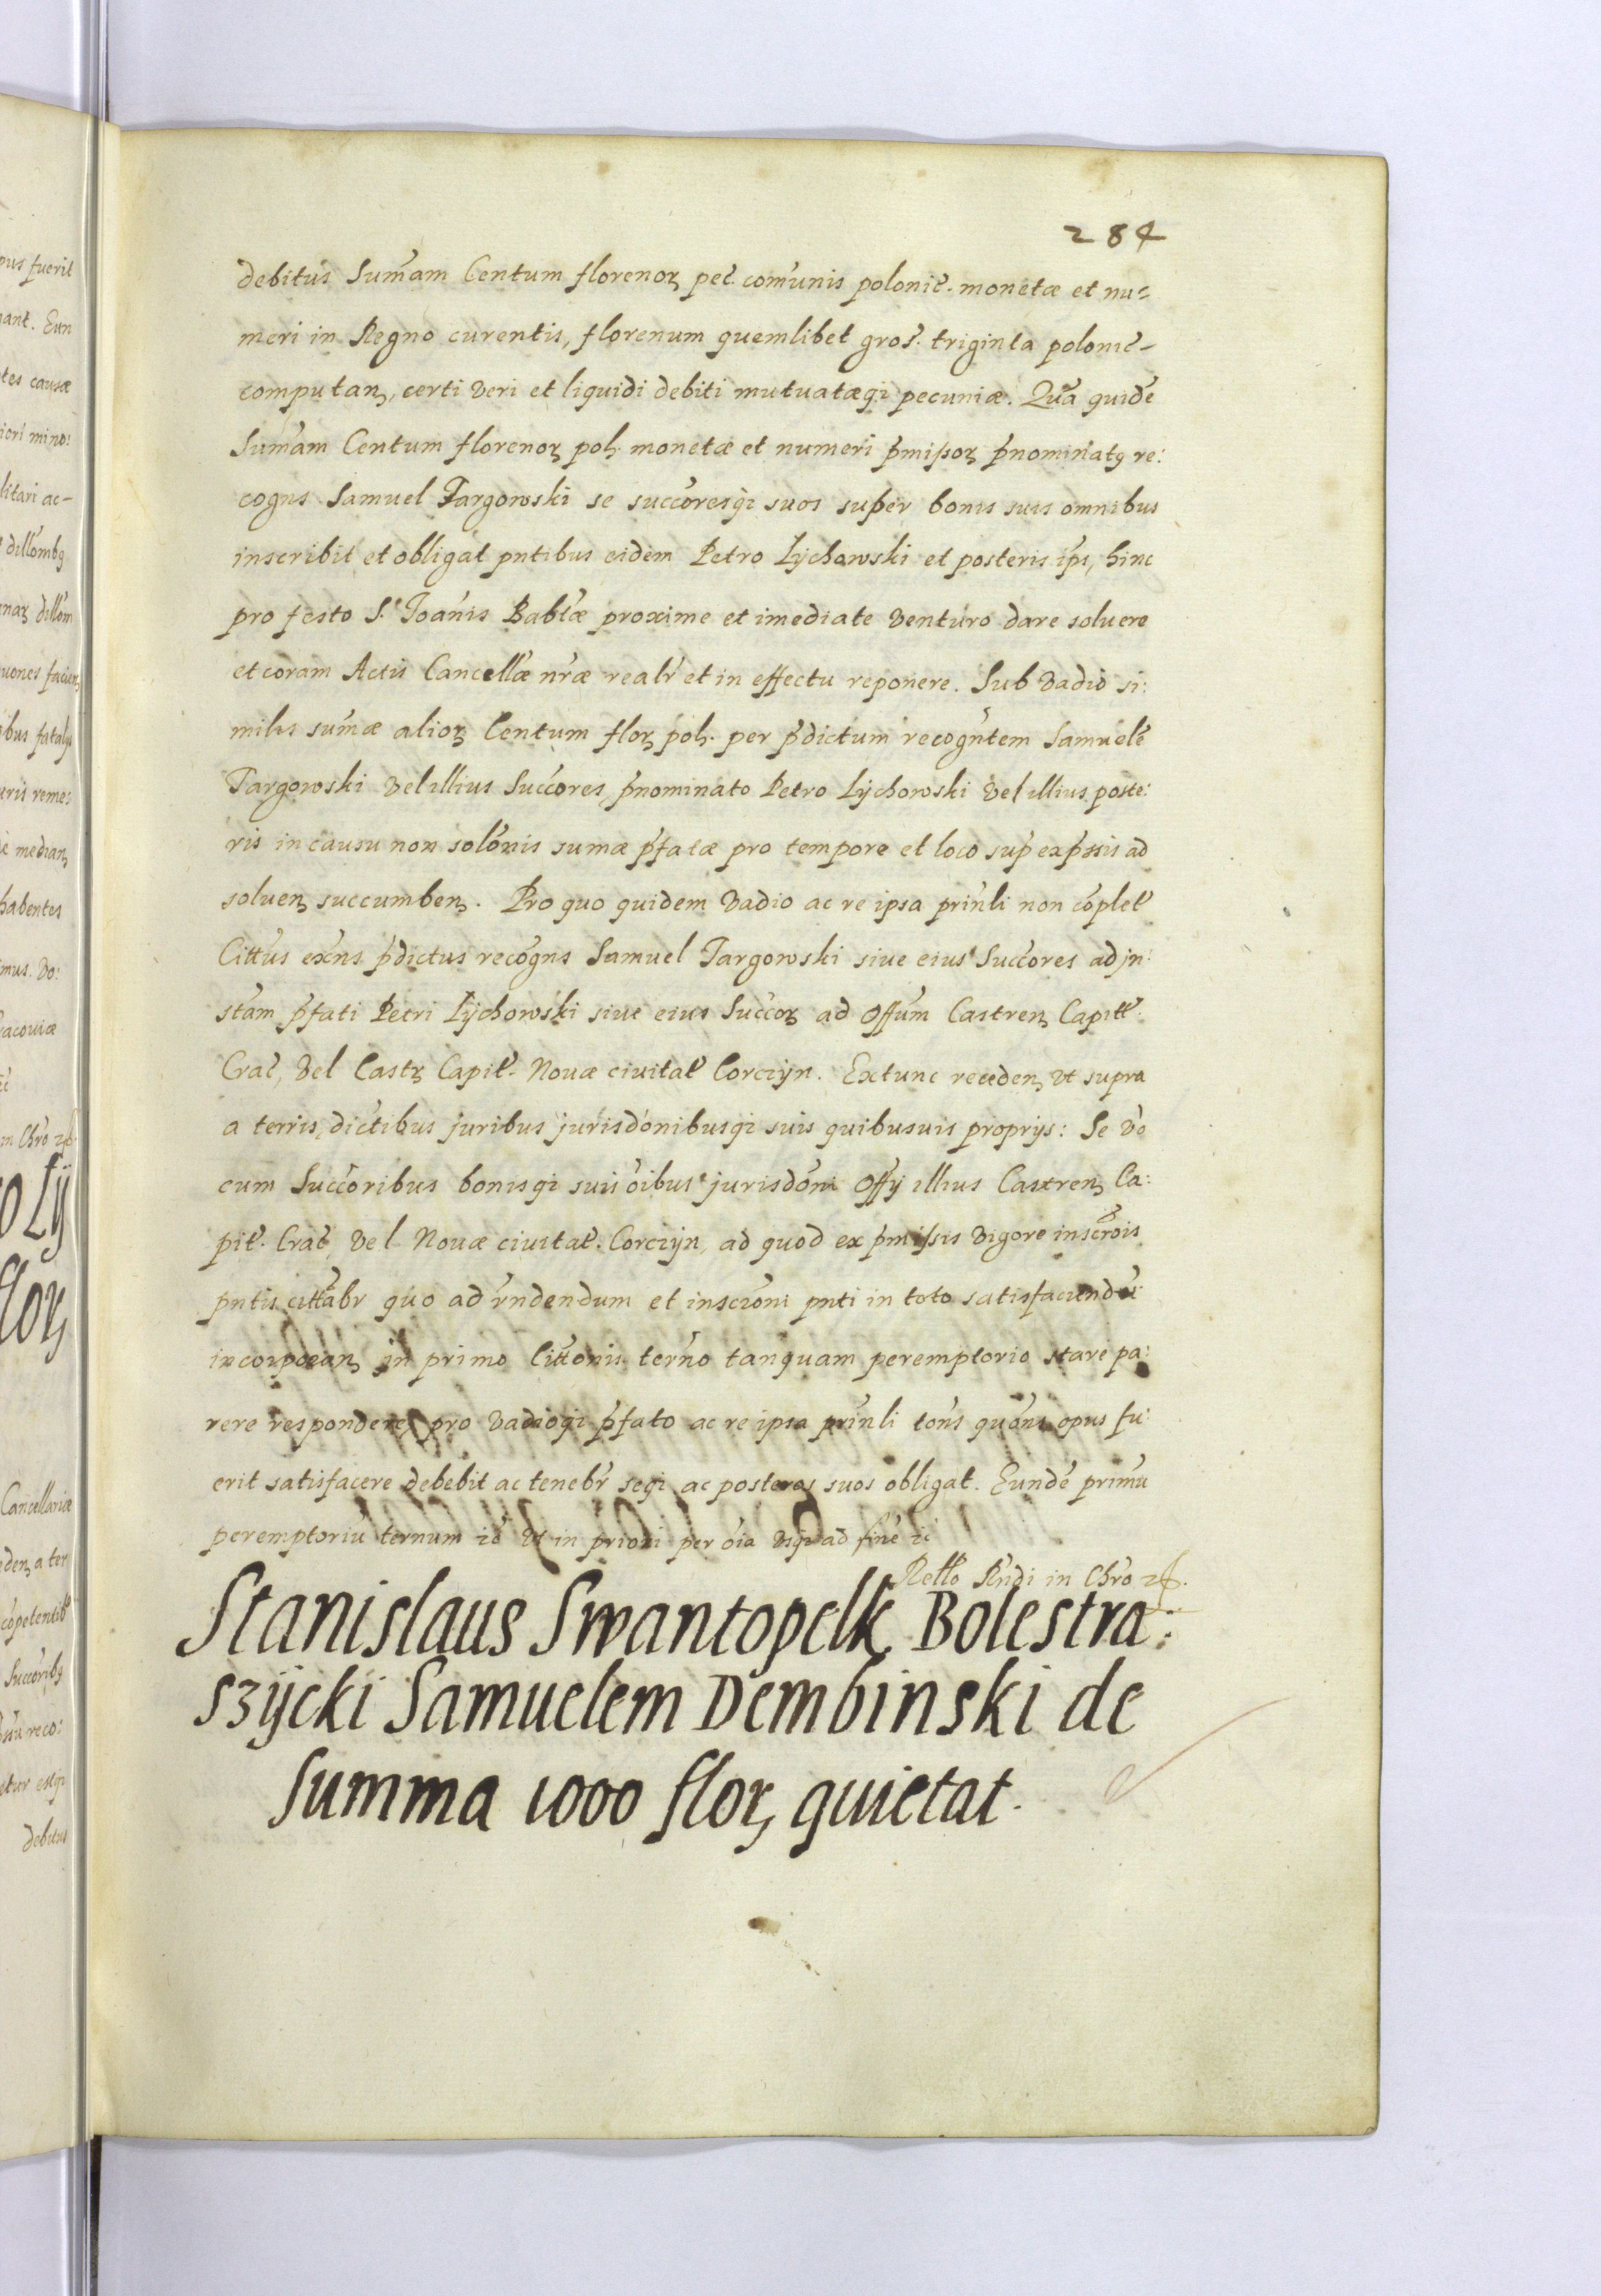 284
debitus Sum̃am Centum florenoꝝ pec̃. com̃unis polonic̃. monetæ et nu=
meri in Regno curentis, florenum quemlibet gros̃. triginta polonic̃-
computanꝫ, certi veri et liquidi debiti mutuatæqꝫ pecuniæ. Quã quidẽ
Sum̃am Centum florenoꝝ polꝫ. monetæ et numeri p̃missoꝝ p̃nominatꝯ re:
cogns Samuel Targowski se succoresqꝫ suos super bonis suis omnibus
inscribit et obligat pntibus eidem Petro Lychowski et posteris ip̃s, hinc
pro festo S. Joañis Babtæ proxime et imediate venturo dare soluere
et coram Actis Cancellæ nr̃æ realr̃ et in effectu reponere. Sub vadio si:
milis sum̃æ alioꝝ Centum floꝝ polꝫ. per p̃dictum recogñtem Samuelẽ
Targowski vel illius Succores p̃nominato Petro Lychowski vel illius poste:
ris in causu non solõnis sumæ p̃fatæ pro tempore et loco sup̃ exp̃ssis ad
soluenꝫ succumbenꝫ. Pro quo quidem vadio ac re ipsa prin̄li non cõplet̃
Citt̃us exn̄s p̃dictus recogñs Samuel Targowski siue eius Succores ad jn:
stam̃ p̃fati Petri Lychowski siue eius Succoꝝ ad Offum̃ Castrenꝫ Capitt̃.
Crac̃, vel Castꝝ Capit̃. Nouæ ciuitat̃ Corczyn. Extunc recedenꝫ vt supra
a terris, dictibus juribus jurisdõnibusqꝫ suis quibusuis proprijs: Se vo
cum Succõribus bonisqꝫ suis õibus jurisdõni Offỹ illius Castrenꝫ Ca:
pit̃. Crac̃ vel Nouæ ciuitat̃. Corczyn, ad quod ex p̃missis vigore inscrõis
pntis citt̃abr quo ad rñdendum et inscrõni pnti in toto satisfaciendũ
incorporanꝫ in primo Citt̃onis ter̃no tanquam peremptorio stare pa:
rere respondere, pro vadioqꝫ p̃fato ac re ipsa prin̄li tõns quõns opus fu:
erit satisfacere debebit ac tenebr̃ seqꝫ ac posteros suos obligat. Eundẽ primũ
peremptoriũ ternum id̃ vt in priori per õia vsqꝫ ad finẽ
in Chro
Stanislaus Swantopelk Bolestra:
szijcki Samuelem Dembinski de
Summa 1000 floꝝ quietat.